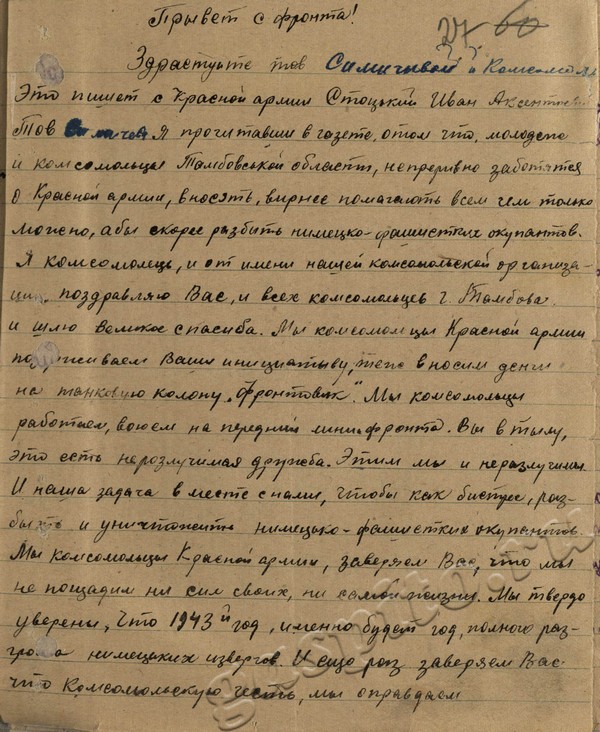 Прывет с фронта!
27 60
Здраствуйте тов Симичывой и Комсомольц
Это пишет с Красной армии Стоцький Иван Аксентиев
Тов Я прочитавши в газете, отом что, молодеж
и комсомольцы Тамбовськой области, непреривно заботятся
о Красной армии, вносять, вирнее помагають всем чем только
можно, абы скорее разбить нимецько-фашистких окупантов.
Я комсомолець, и от имени нашей комсомольской организа-
ции, поздравляю Вас, и всех комсомольцев г. Тамбова
и шлю великое спасиба. Мы комсомольцы Красной армии
поддерживаем Вашу инициатыву, тоже вносим деньги
на танковую колону "Фронтовик". Мы комсомольцы
работаем, воюем на передний линии фронта. Вы в тылу,
это есть неразлучимая дружба. Этим мы и неразлучимы.
И наша задача вместе с нами, чтобы как бистрее, раз-
быть и уничтожить нимецько-фашистких окупантов.
Мы комсомольцы Красной армии, заверяем Вас, что мы
не пощадим ни сил своих, ни самой жизни. Мы твердо
уверены, что 1943й год, именно будет год, полного раз-
грома нимецьких извергов. И ещо раз заверяем Вас
что Комсомольскую честь, мы оправдаем